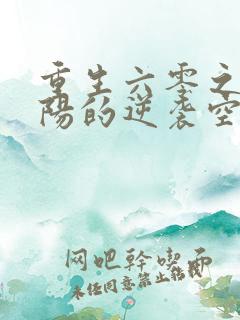 重生六零之
陽的逆袭空
网吧幹喫面
未经同意禁止转载